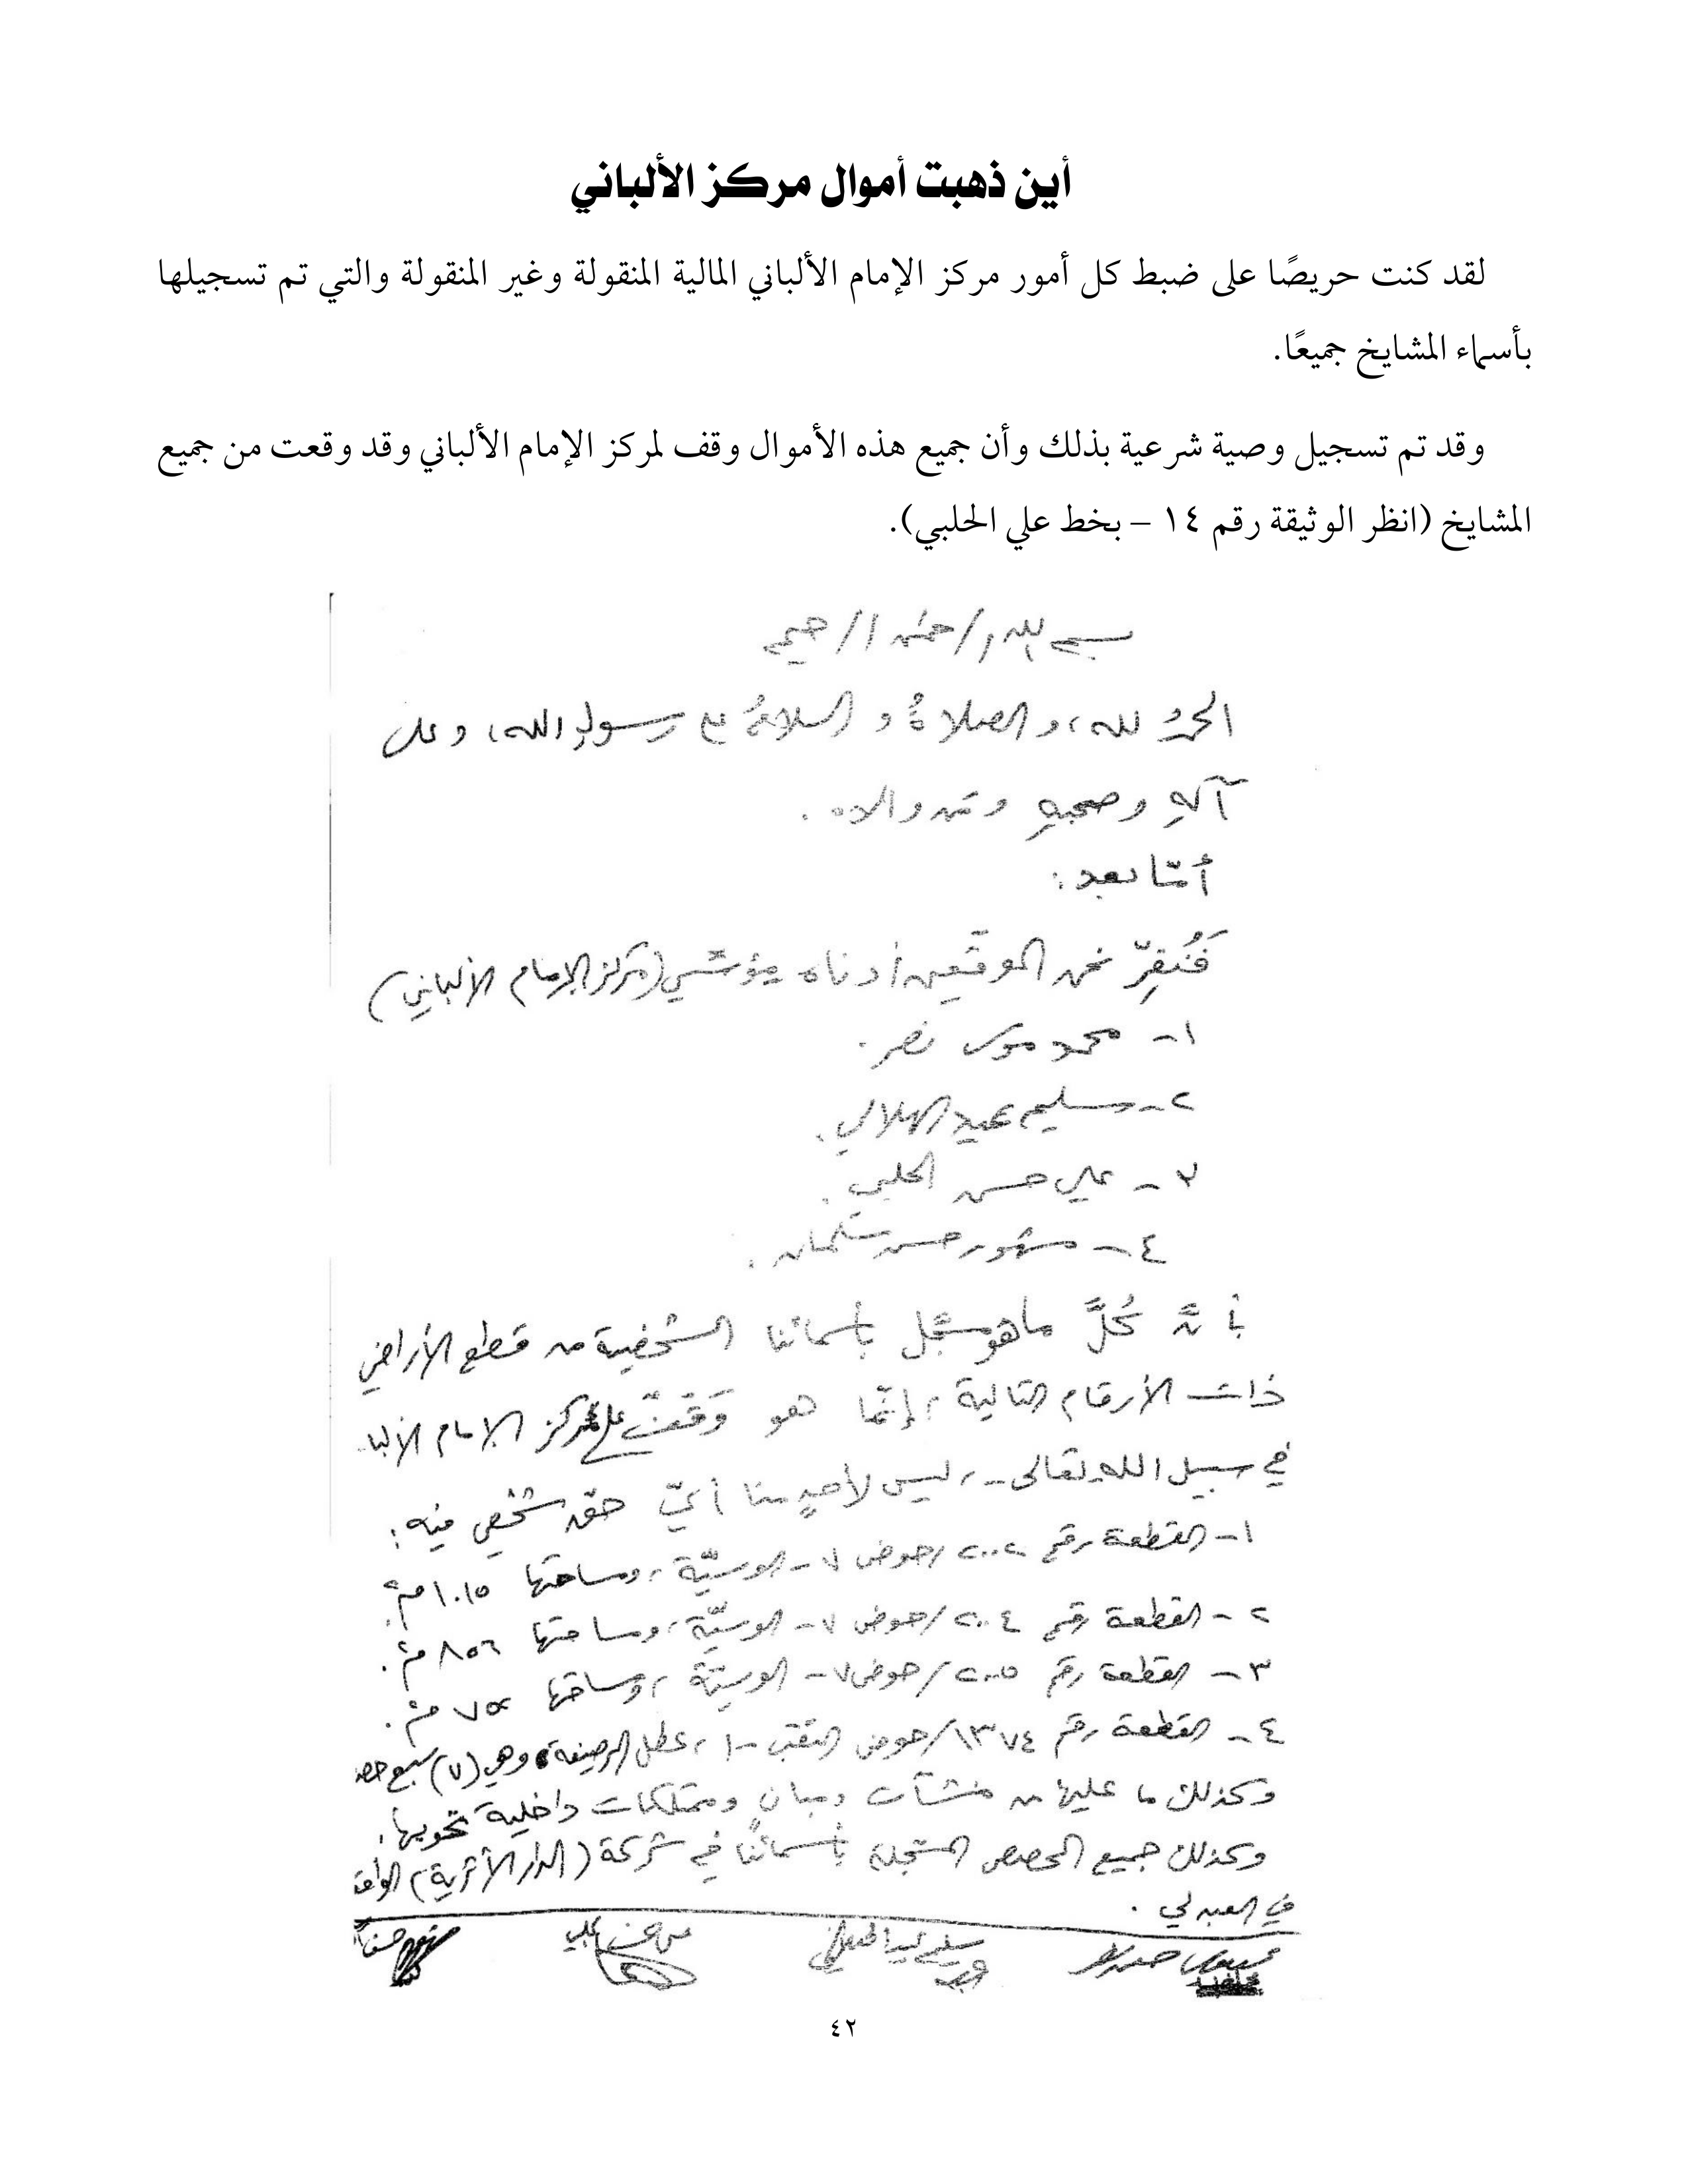 أين ذهبت أموال مركز الألباني
لقد كنت حريصًا على ضبط كل أمور مركز الإمام الألباني المالية المنقولة وغير المنقولة والتي تم تسجيلها
بأسماء المشايخ جميعًا.
وقد تم تسجيل وصية شرعية بذلك وأن جميع هذه الأموال وقف لمركز الإمام الألباني وقد وقعت من جميع
المشايخ (انظر الوثيقة رقم ١٤ – بخط علي الحلبي).
بسم الله الرحمن الرحيم
الحمدُ لله، والصلاةُ والسلامُ على رسولِ الله، وعلى
آلهِ وصحبهِ ومَن والاه.
أمّا بعد:
فَنُقِرّ نحن الموقّعين أدناه مؤسّسي (مركز الإمام الألباني)
١- محمد موسى نصر.
٢- سليم عيد الهلالي.
٣- علي حسن الحلبي.
٤- مشهور حسن سلمان.
بأنّ كُلَّ ما هو مسجّل بأسمائنا الشخصية من قطع الأراضي
ذات الأرقام التالية، إنّما هو وَقفٌ على مركز الإمام الألبا
في سبيل الله تعالى-، ليس لأحدٍ منا أيّ حق شخصي فيه:
١- القطعة رقم ٢٠٠٢/حوض ٧- الوسيّة، ومساحتها ١٠١٥م٢.
٢- القطعة رقم ٢٠٠٤/حوض ٧- الوسيّة، ومساحتها ٨٥٦م٢.
٣- القطعة رقم ٢٠٠٥/حوض ٧- الوسيّة، ومساحتها م٢.
٤- القطعة رقم ١٣٧٤/حوض النقب-١، الرصيفة، وهي (٧) سبع حص
وكذلك ما عليها من منشآت ومبانٍ وممتلكات داخلية تحويها.
وكذلك جميع الحصص المسجّلة بأسمائنا في شركة (الدار الأثرية) الواقع
في العبدلي.
سليم عيد الهلالي علي حسن الحلبي مشهور حسن
٤٢